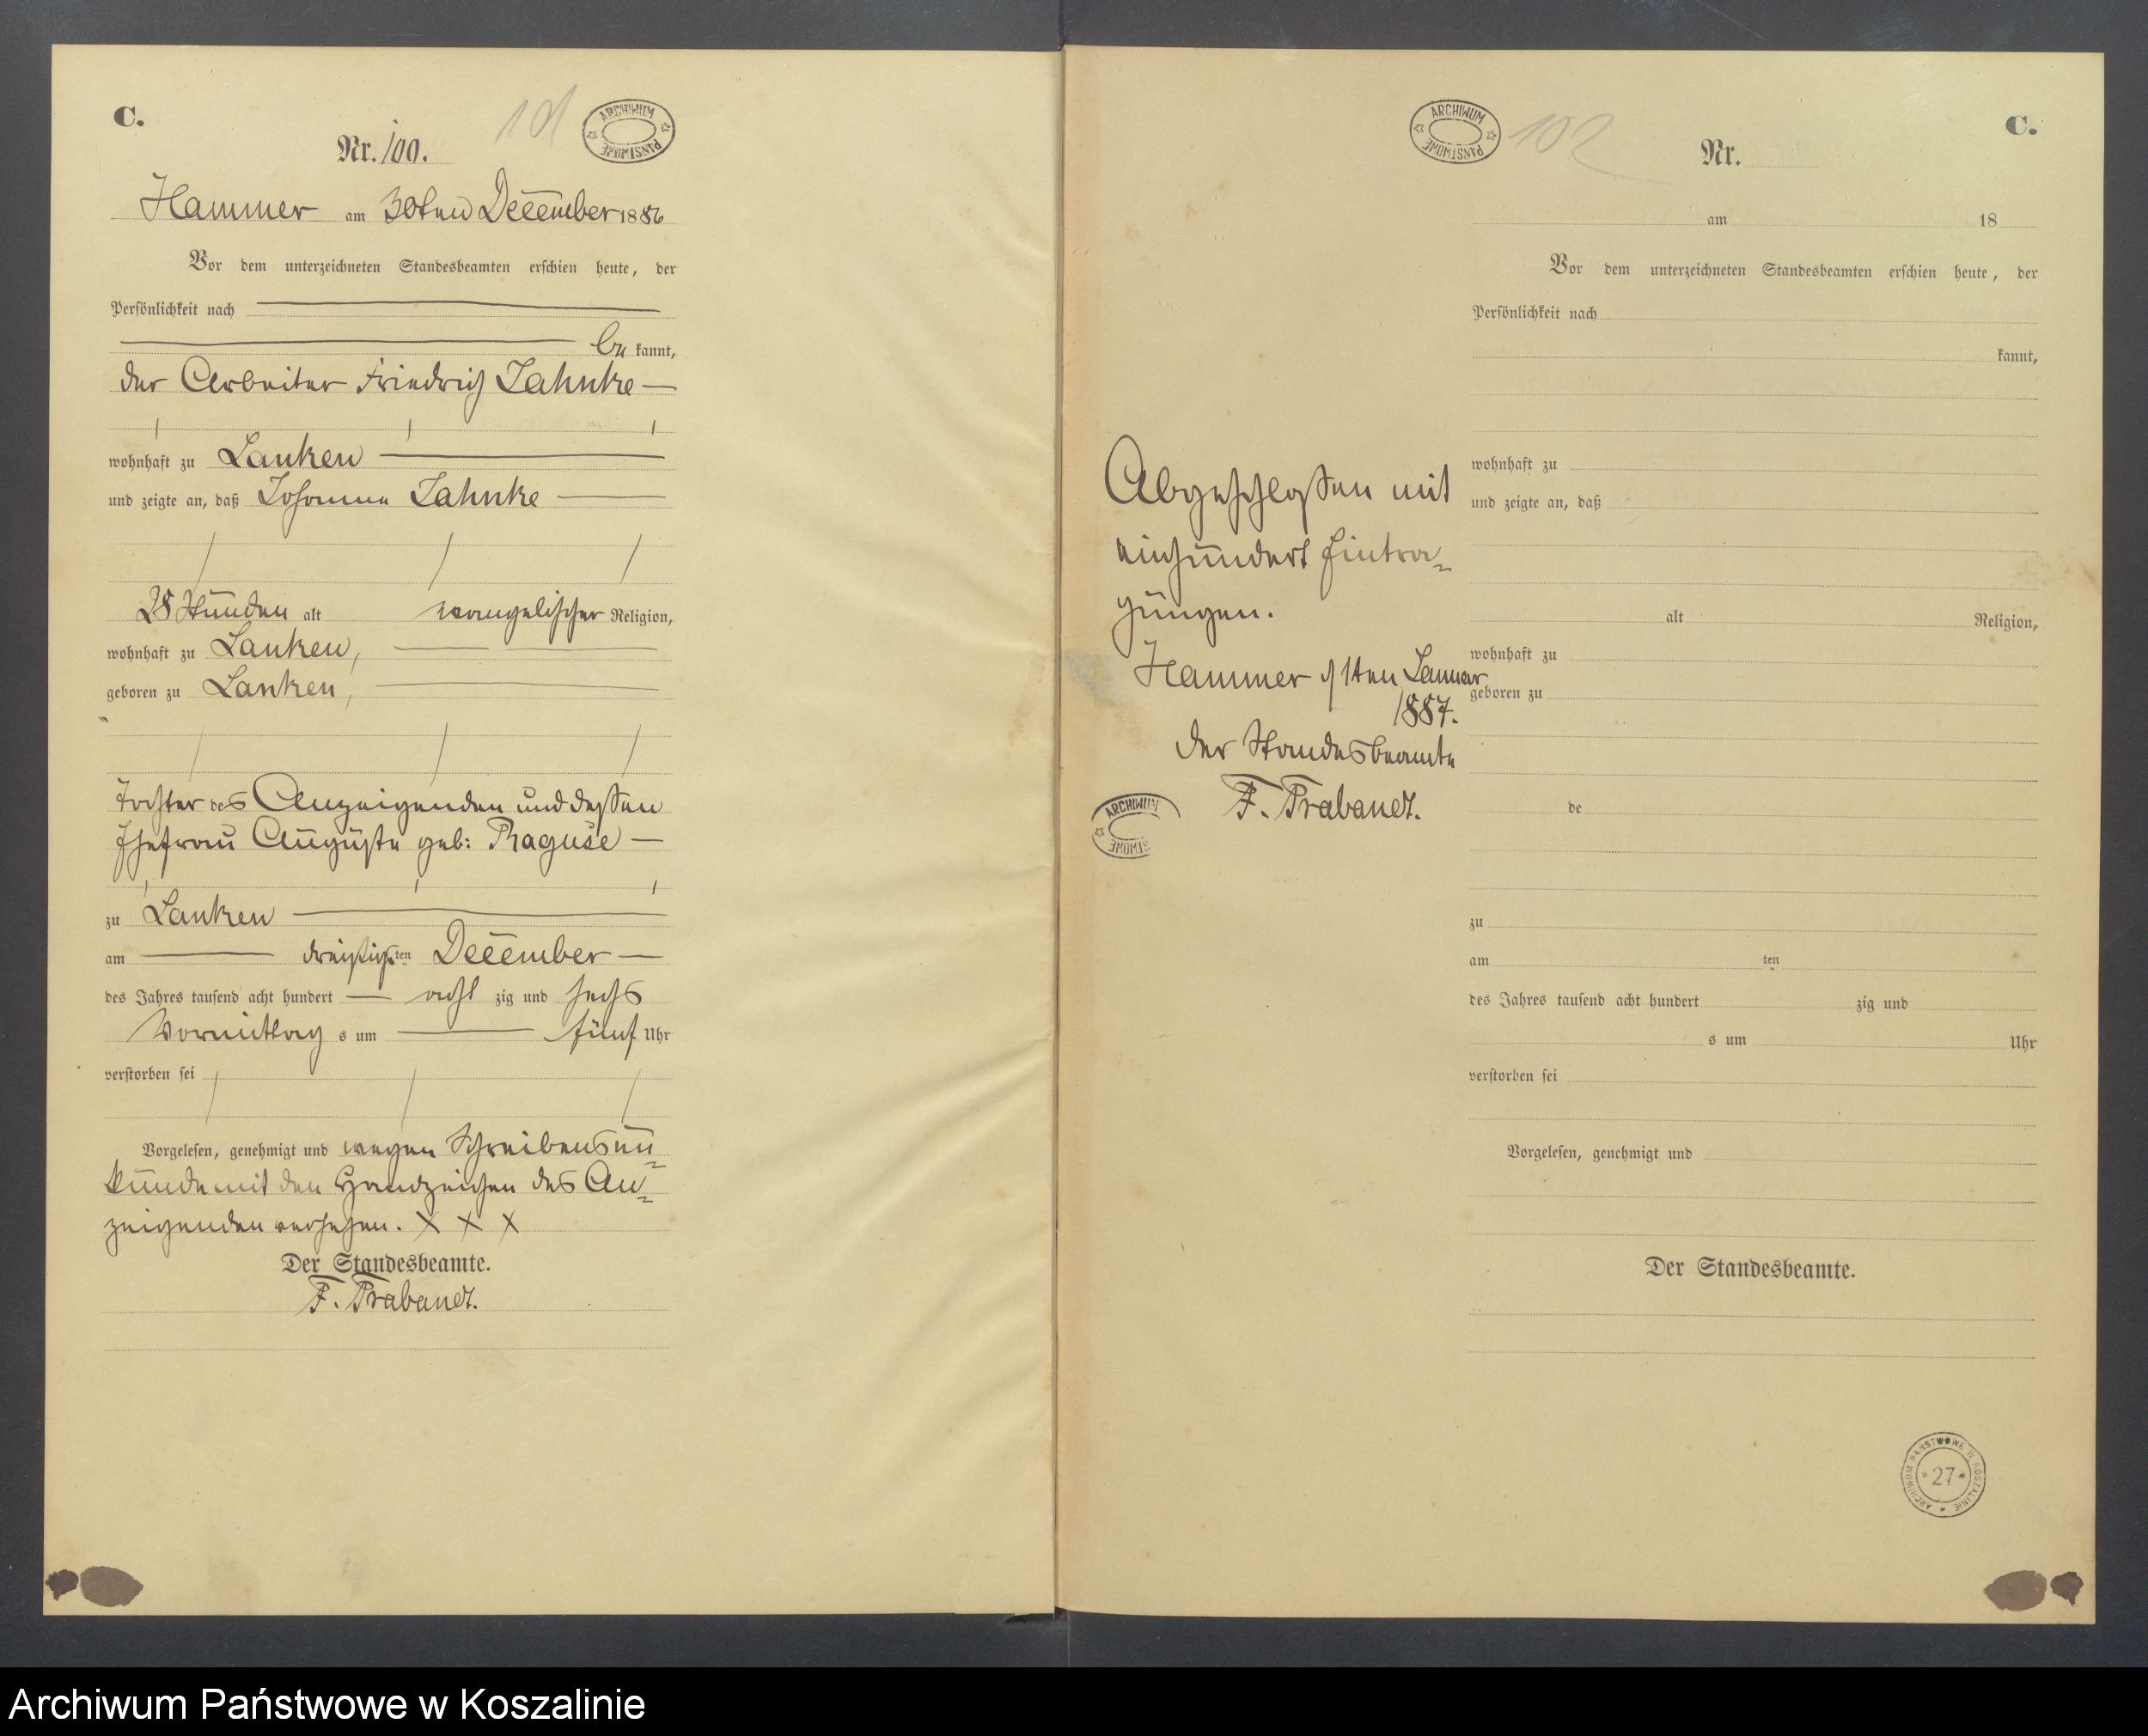 C.
101
ARCHIWUM PAŃSTWOWE
Nr. 100.
Hammer am 30ten December 1886
Vor dem unterzeichneten Standesbeamten erschien heute, der
Persönlichkeit nach
be kannt,
der Arbeiter Friedrich Jahnke
wohnhaft zu Lanken
und zeigte an, daß Johanna Jahnke
28 Stunden alt evangelischer Religion,
wohnhaft zu Lanken,
geboren zu Lanken,
Tochter des Anzeigenden und dessen
Ehefrau Auguste geb: Raguse
zu Lanken
am dreißigsten ten December
des Jahres tausend acht hundert acht zig und sechs
Vormittag s um fünf Uhr
verstorben sei
Vorgelesen, genehmigt und wegen Schreibensun=
kunde mit den Handzeichen des An=
zeigenden versehen. X X X
Der Standesbeamte.
F. Trabandt.
ARCHIWUM PAŃSTWOWE
102
C.
Nr.
am 18
Vor dem unterzeichneten Standesbeamten erschien heute, der
Persönlichkeit nach
kannt,
wohnhaft zu
und zeigte an, daß
alt Religion,
wohnhaft zu
geboren zu
de
zu
am ten
des Jahres tausend acht hundert zig und
s um Uhr
verstorben sei
Vorgelesen, genehmigt und
Der Standesbeamte.
Abgeschlossen mit
einhundert Eintra=
gungen.
Hammer d 1ten Januar
1887.
Der Standesbeamte
F. Trabandt.
ARCHIWUM
ARCHIWUM PAŃSTWOWE W KOSZALINIE
* 27 *
Archiwum Państwowe w Koszalinie